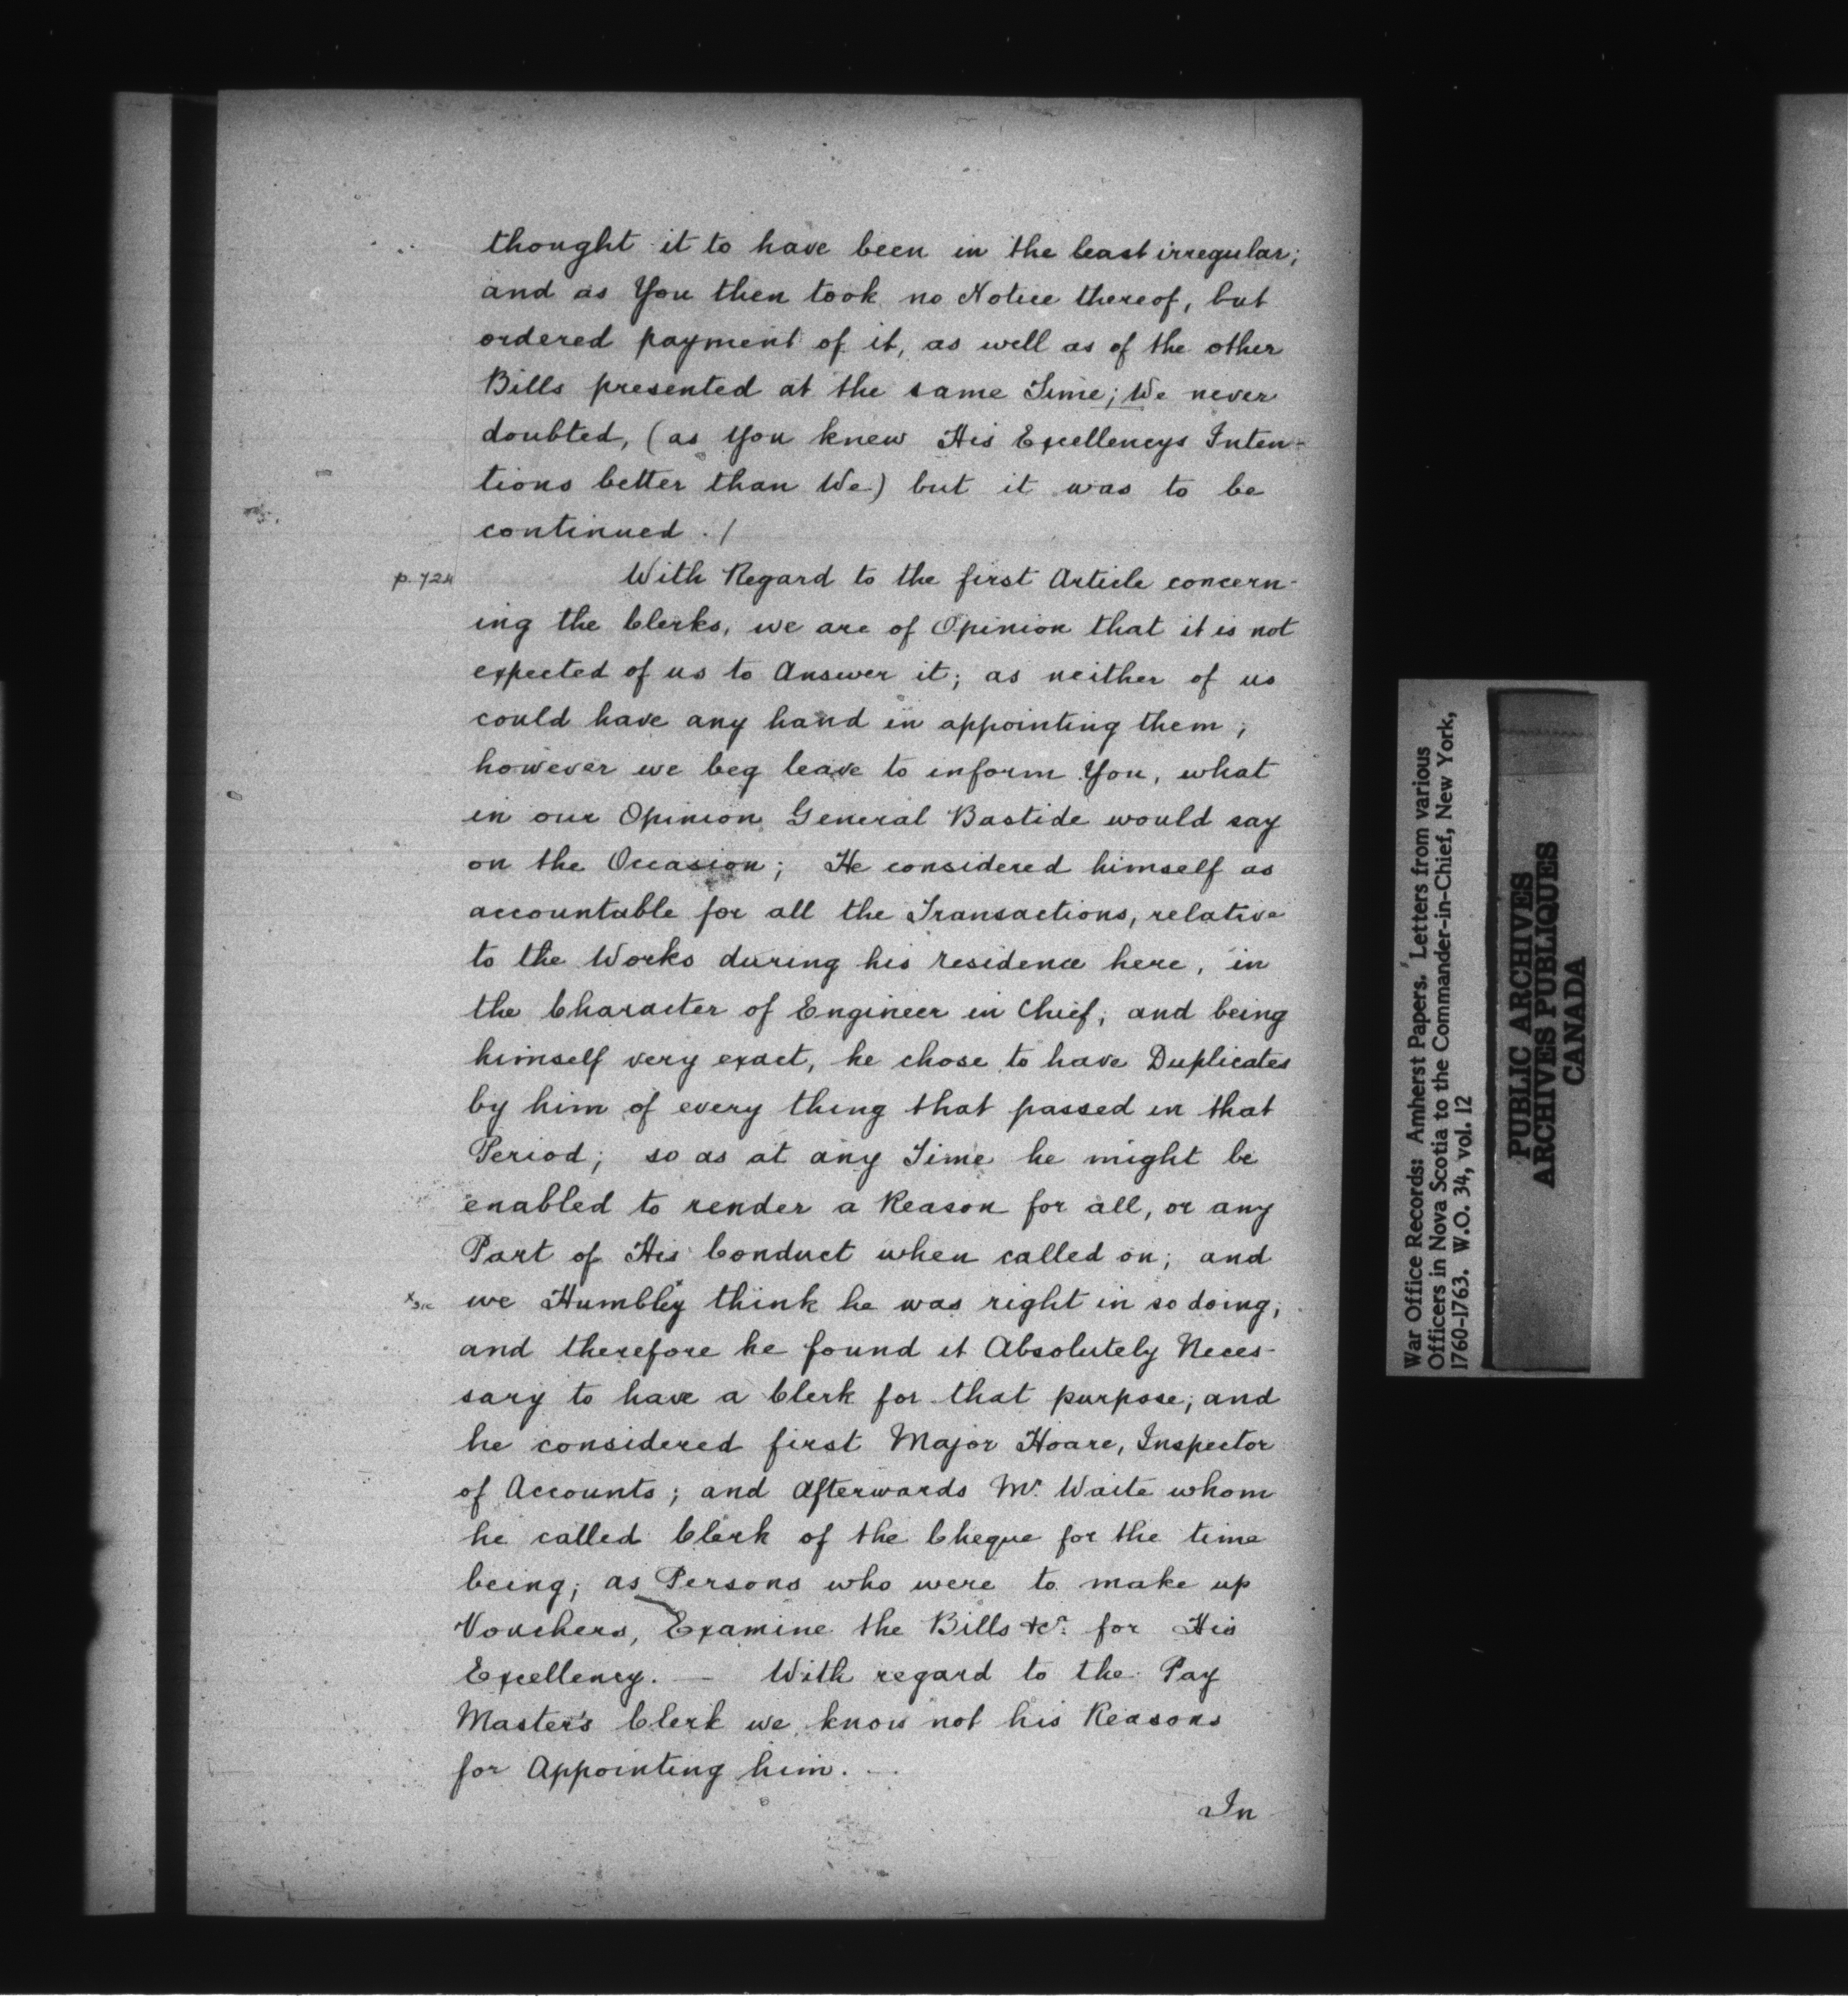 thought it to have been in the least irregular;
and as You then took no Notice thereof, but
ordered payment of it, as well as of the other
Bills presented at the same Time; We never
doubted, (as You knew His Excellencys Inten-
tions better than We) but it was to be
continued ./
p. 724
With Regard to the first Article concern-
ing the Clerks, we are of Opinion that it is not
expected of us to Answer it; as neither of us
could have any hand in appointing them;
however we beg leave to inform You, what
in our Opinion General Bastide would say
on the Occasion; He considered himself as
accountable for all the Transactions, relative
to the Works during his residence here, in
the Character of Engineer in Chief; and being
himself very exact, he chose to have Duplicates
by him of every thing that passed in that
Period; so as at any Time he might be
enabled to render a Reason for all, or any
Part of His Conduct when called on; and
x sic
we Humbley x think he was right in so doing;
and therefore he found it Absolutely Neces-
sary to have a Clerk for that purpose; and
he considered first Major Hoare, Inspector
of Accounts; and Afterwards Mr. Waite whom
he called Clerk of the Cheque for the time
being; as Persons who were to make up
Vouchers, Examine the Bills &c. for His
Excellency. — With regard to the Pay
Master's Clerk we know not his Reasons
for Appointing him. —
In
War Office Records: Amherst Papers. 'Letters from various
Officers in Nova Scotia to the Commander-in-Chief, New York,
1760-1763. W.O. 34, vol. 12
PUBLIC ARCHIVES
ARCHIVES PUBLIQUES
CANADA